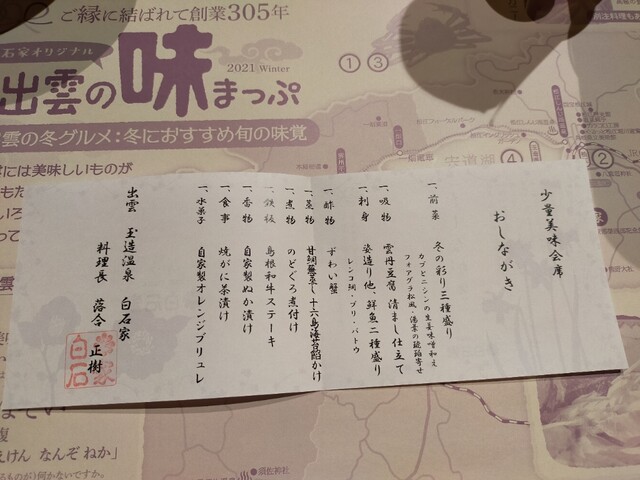 ご縁に結ばれて創業305年
石家オリジナル
2021 Winter
出雲の味まっぷ
雲の冬グルメ:冬におすすめ旬の味覚
には美味しいものが
①③
④
②
少量美味会席
おしながき
一、前菜 冬の彩り三種盛り
カブとニシンの生姜味噌和え
フォアグラ松風・湯葉の琥珀寄せ
一、吸物 雲丹豆腐 清まし仕立て
一、刺身 姿造り他、鮮魚二種盛り
レンコ鯛・ブリ・バトウ
一、酢物 ずわい蟹
一、蒸物 甘鯛蕪蒸し 十六島海苔餡かけ
一、煮物 のどぐろ煮付け
一、鉄板 島根和牛ステーキ
一、香物 自家製ぬか漬け
一、食事 焼がに茶漬け
一、水菓子 自家製オレンジブリュレ
出雲 玉造温泉 白石家
料理長 落合 正樹
白石家
えけん なんぞ ねか」
須佐神社